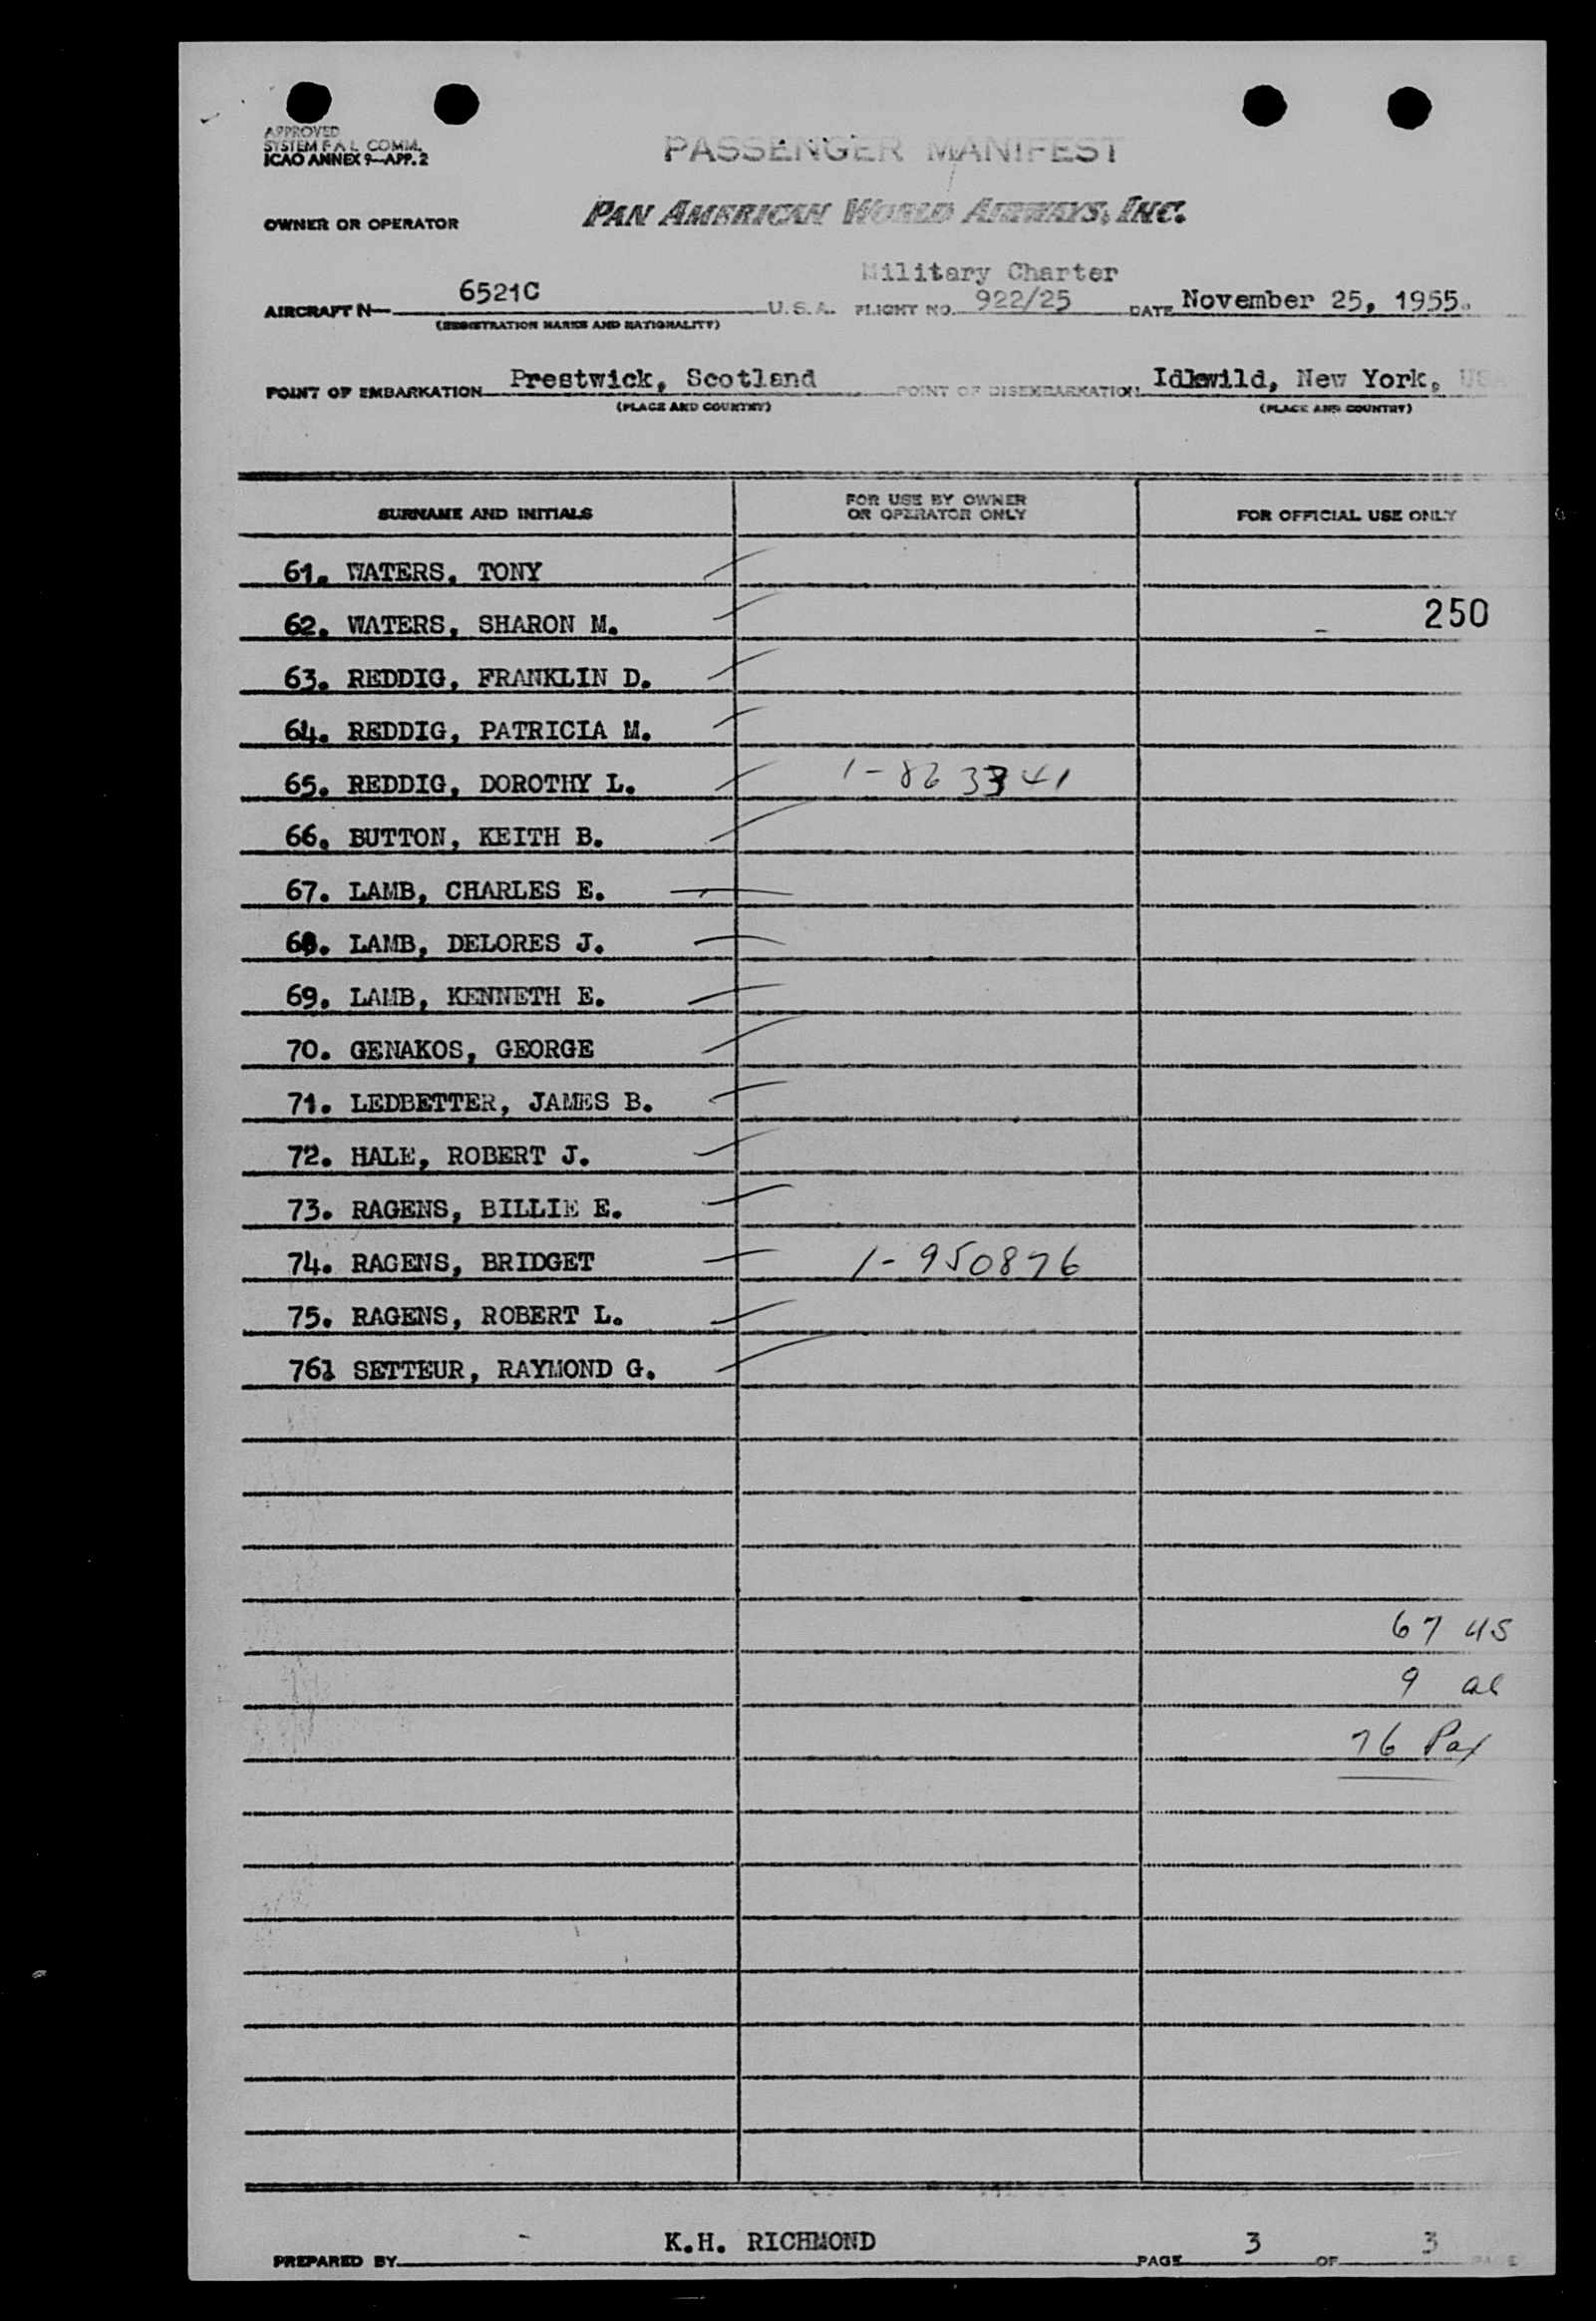 APPROVED
SYSTEM F A L COMM.
ICAO ANNEX 9—APP. 2
PASSENGER MANIFEST
OWNER OR OPERATOR PAN AMERICAN WORLD AIRWAYS, INC.
Military Charter
AIRCRAFT N— 6521C U.S.A. FLIGHT NO. 922/25 DATE November 25, 1955.
(REGISTRATION MARKS AND NATIONALITY)
POINT OF EMBARKATION Prestwick, Scotland POINT OF DISEMBARKATION Idlewild, New York, USA
(PLACE AND COUNTRY) (PLACE AND COUNTRY)
SURNAME AND INITIALS FOR USE BY OWNER OR OPERATOR ONLY FOR OFFICIAL USE ONLY
61. WATERS, TONY
62. WATERS, SHARON M. 250
63. REDDIG, FRANKLIN D.
64. REDDIG, PATRICIA M.
65. REDDIG, DOROTHY L. 1-863341
66. BUTTON, KEITH B.
67. LAMB, CHARLES E.
68. LAMB, DELORES J.
69. LAMB, KENNETH E.
70. GENAKOS, GEORGE
71. LEDBETTER, JAMES B.
72. HALE, ROBERT J.
73. RAGENS, BILLIE E.
74. RAGENS, BRIDGET 1-950876
75. RAGENS, ROBERT L.
761 SETTEUR, RAYMOND G.
67 US
9 al
76 Pax
PREPARED BY K.H. RICHMOND PAGE 3 OF 3 PAGE